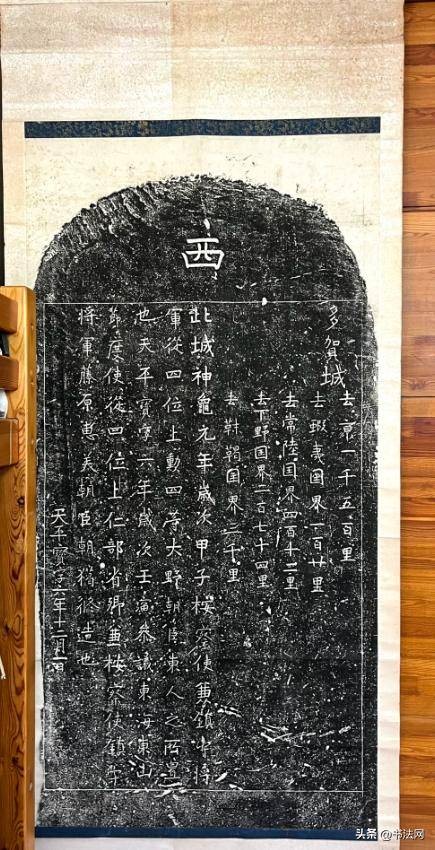 西
多賀城
去京一千五百里
去蝦夷国界一百廿里
去常陸国界四百十二里
去下野国界二百七十四里
去靺鞨国界三千里
此城神龜元年歲次甲子按察使兼鎮守將
軍從四位上勳四等大野朝臣東人之所置
也天平寶字六年歲次壬寅參議東海東山
節度使從四位上仁部省卿兼按察使鎮守
將軍藤原惠美朝臣朝獦修造也
天平寶字六年十二月一日
头条 @书法网